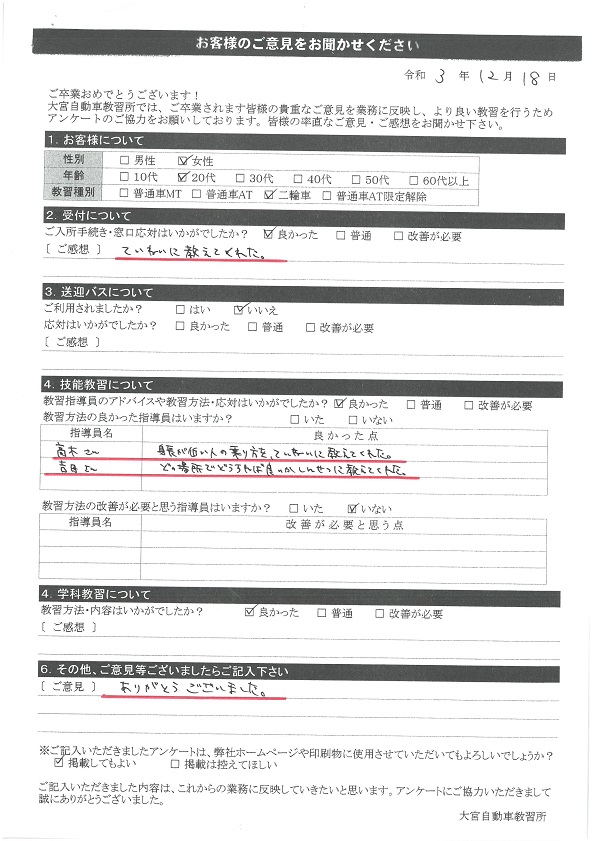 お客様のご意見をお聞かせください
令和 3 年 12 月 18 日
ご卒業おめでとうございます！
大宮自動車教習所では、ご卒業されます皆様の貴重なご意見を業務に反映し、より良い教習を行うため
アンケートのご協力をお願いしております。皆様の率直なご意見・ご感想をお聞かせ下さい。
1. お客様について
性別 □ 男性 ☑ 女性
年齢 □ 10代 ☑ 20代 □ 30代 □ 40代 □ 50代 □ 60代以上
教習種別 □ 普通車MT □ 普通車AT ☑ 二輪車 □ 普通車AT限定解除
2. 受付について
ご入所手続き・窓口応対はいかがでしたか？ ☑ 良かった □ 普通 □ 改善が必要
［ ご感想 ］ ていねいに教えてくれた。
3. 送迎バスについて
ご利用されましたか？ □ はい ☑ いいえ
応対はいかがでしたか？ □ 良かった □ 普通 □ 改善が必要
［ ご感想 ］
4. 技能教習について
教習指導員のアドバイスや教習方法・応対はいかがでしたか？ ☑ 良かった □ 普通 □ 改善が必要
教習方法の良かった指導員はいますか？ □ いた □ いない
指導員名 良かった点
高木さん 身長が低い人の乗り方を、ていねいに教えてくれた。
吉田さん どの場所でどうすれば良いかしんせつに教えてくれた。
教習方法の改善が必要と思う指導員はいますか？ □ いた ☑ いない
指導員名 改善が必要と思う点
4. 学科教習について
教習方法・内容はいかがでしたか？ ☑ 良かった □ 普通 □ 改善が必要
［ ご感想 ］
6. その他、ご意見等ございましたらご記入下さい
［ ご意見 ］ ありがとうございました。
※ご記入いただきましたアンケートは、弊社ホームページや印刷物に使用させていただいてもよろしいでしょうか？
☑ 掲載してもよい □ 掲載は控えてほしい
ご記入いただきました内容は、これからの業務に反映していきたいと思います。アンケートにご協力いただきまして
誠にありがとうございました。
大宮自動車教習所